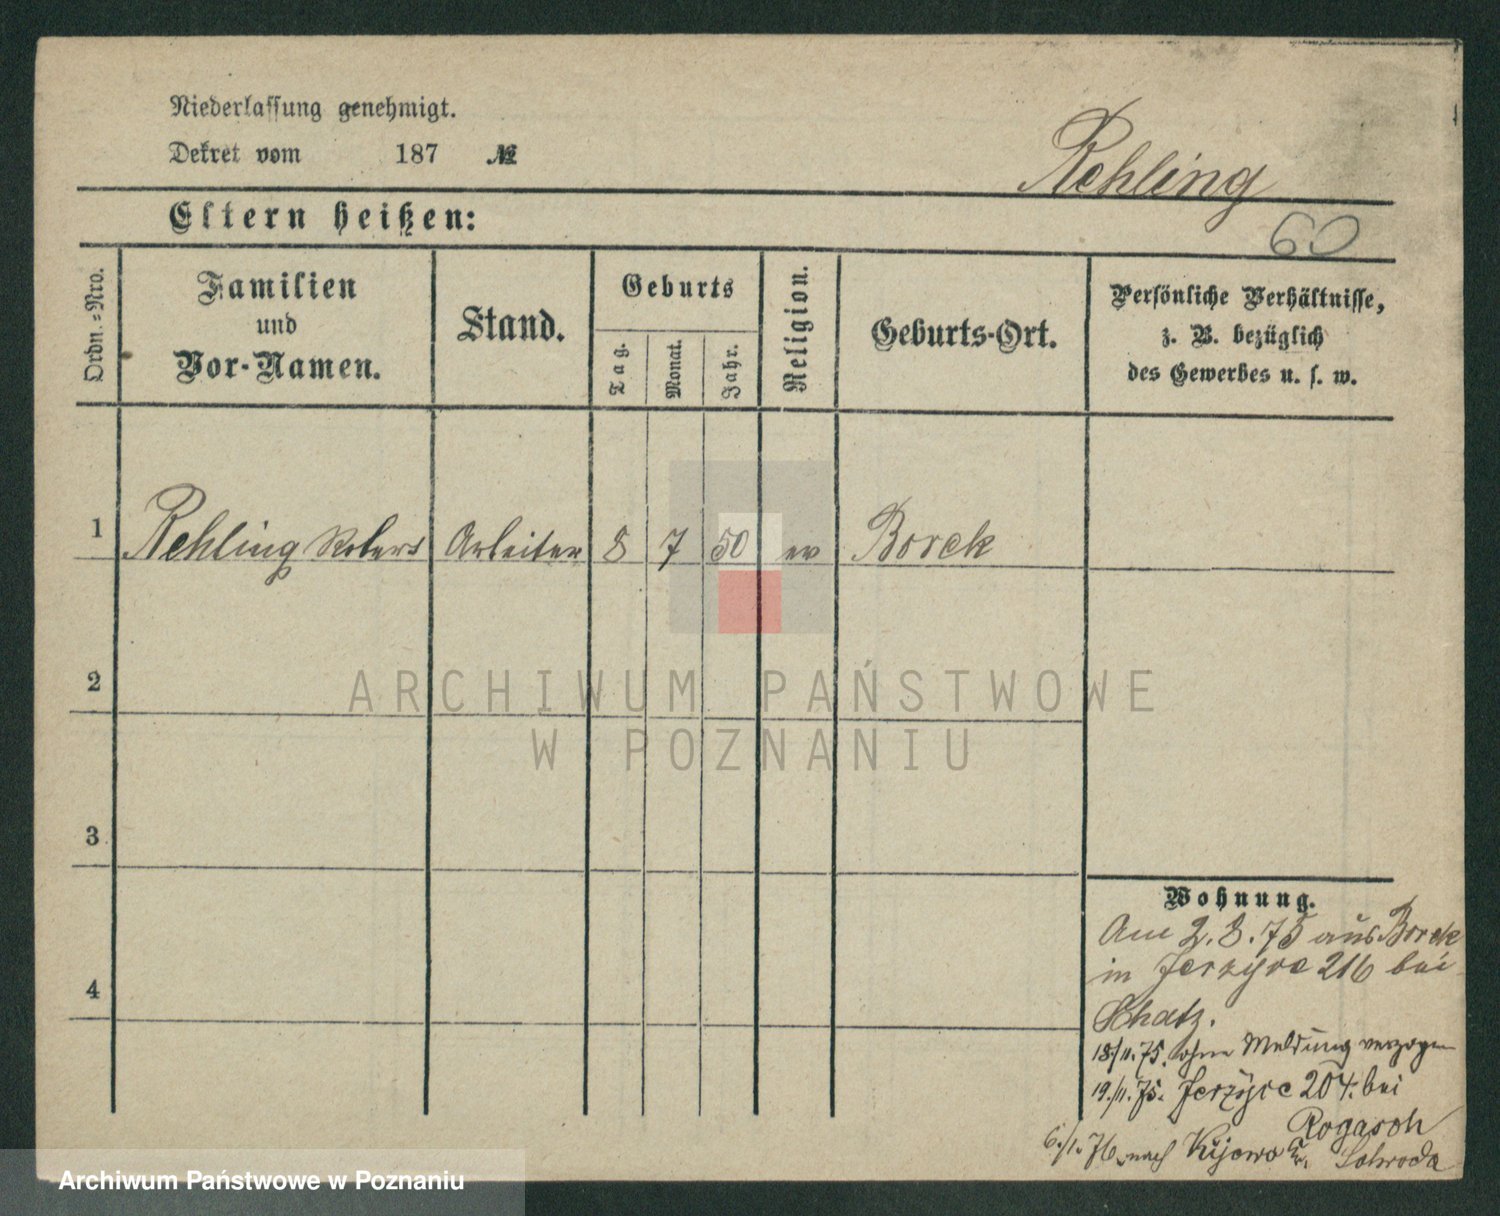 Niederlassung genehmigt.
Dekret vom 187 №
Rehling
Eltern heißen:
60
Ordn.-Nro.
Familien
und
Vor-Namen.
Stand.
Geburts
Tag.
Monat.
Jahr.
Religion.
Geburts-Ort.
Persönliche Verhältnisse,
z. B. bezüglich
des Gewerbes u. s. w.
1 Rehling Robert Arbeiter 8 7 50 ev Borek
2
ARCHIWUM PAŃSTWOWE
W POZNANIU
3
4
Wohnung.
Am 2.8.75 aus Borek
in Jerzyce 216 bei
Schatz.
18/11.75. ohne Meldung verzogen
19/11.75. Jerzyce 204. bei
Rogasch
6./1.76. nach Kijewo Kr. Schroda
Archiwum Państwowe w Poznaniu